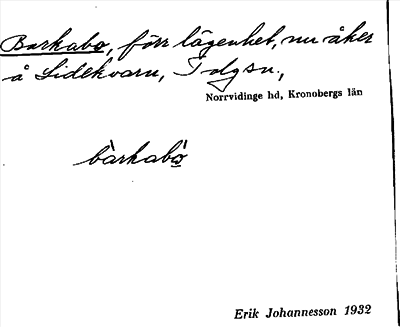 Barkabo, förr lägenhet, nu åker
å Sidekvarn, Tolgsn.,
Norrvidinge hd, Kronobergs län
bàrkabò
Erik Johannesson 1932